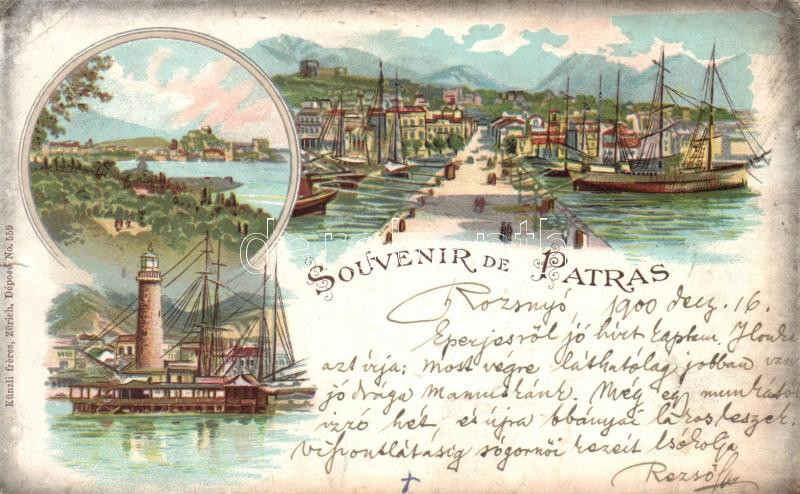 SOUVENIR DE PATRAS
Künzli frères, Zürich. Déposé No. 559
Rozsnyó, 1900 decz. 16.
Eperjesről jó hírt kaptam. Ilonka
azt írja: most végre láthatólag jobban van
jó drága Mamuskánk. Még egy munkától
izzó hét, és újra bányai lakos leszek.
viszontlátásig sógornői kezeit csókolja
Rezső
darabanth